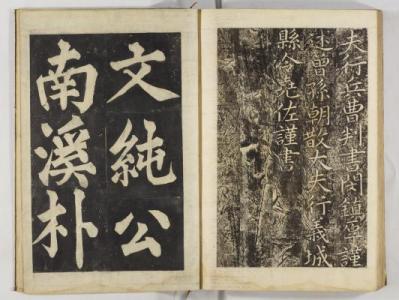 夫行兵曹判書閔鎮厚謹
述曾孫朝散大夫行義城
縣令 佐謹書
文純公
南溪朴